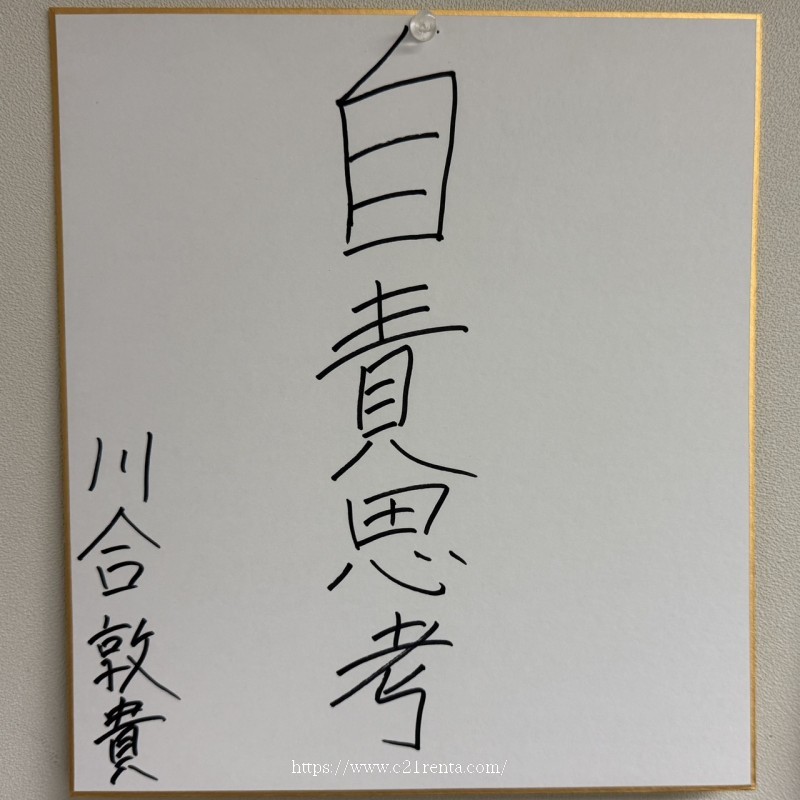 自責思考
川合敦貴
https://www.c21renta.com/